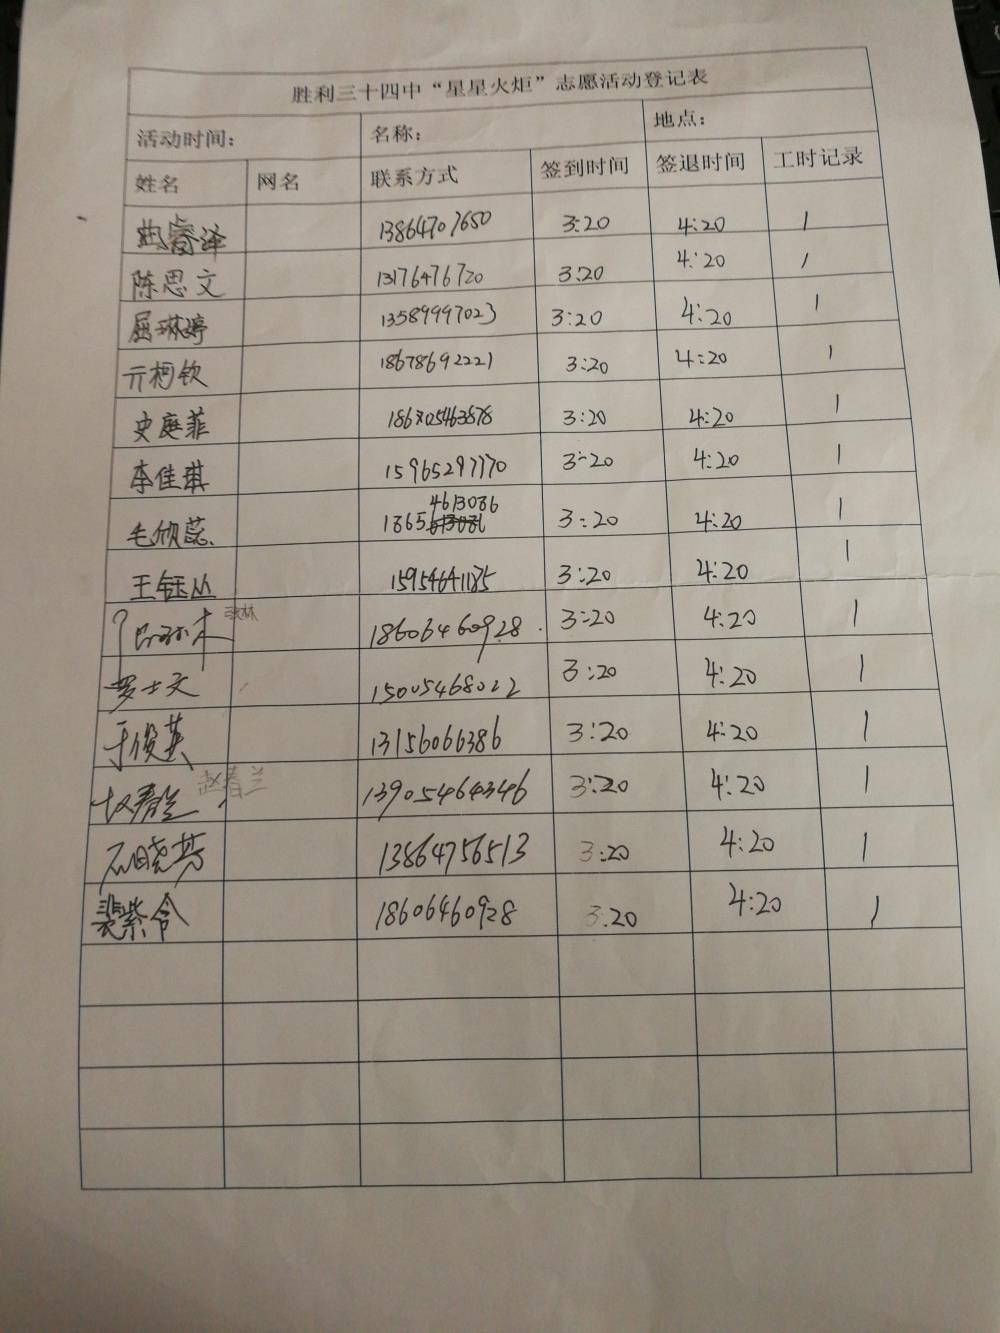 胜利三十四中“星星火炬”志愿活动登记表
活动时间： 名称： 地点：
姓名 网名 联系方式 签到时间 签退时间 工时记录
曲春泽 13864707650 3:20 4:20 1
陈思文 13176476720 3:20 4:20 1
屈琳婷 13589997023 3:20 4:20 1
亓柯钦 18678692221 3:20 4:20 1
史庭菲 3:20 4:20 1
李佳琪 15965297770 3:20 4:20 1
毛欣蕊 18654613086 3:20 4:20 1
王钰丛 15954641185 3:20 4:20 1
张林 18606460928 3:20 4:20 1
罗士文 15005468022 3:20 4:20 1
于俊英 13156066386 3:20 4:20 1
赵春兰 赵春兰 13905464346 3:20 4:20 1
石晓芬 13864756513 3:20 4:20 1
裴紫令 18606460928 3:20 4:20 1